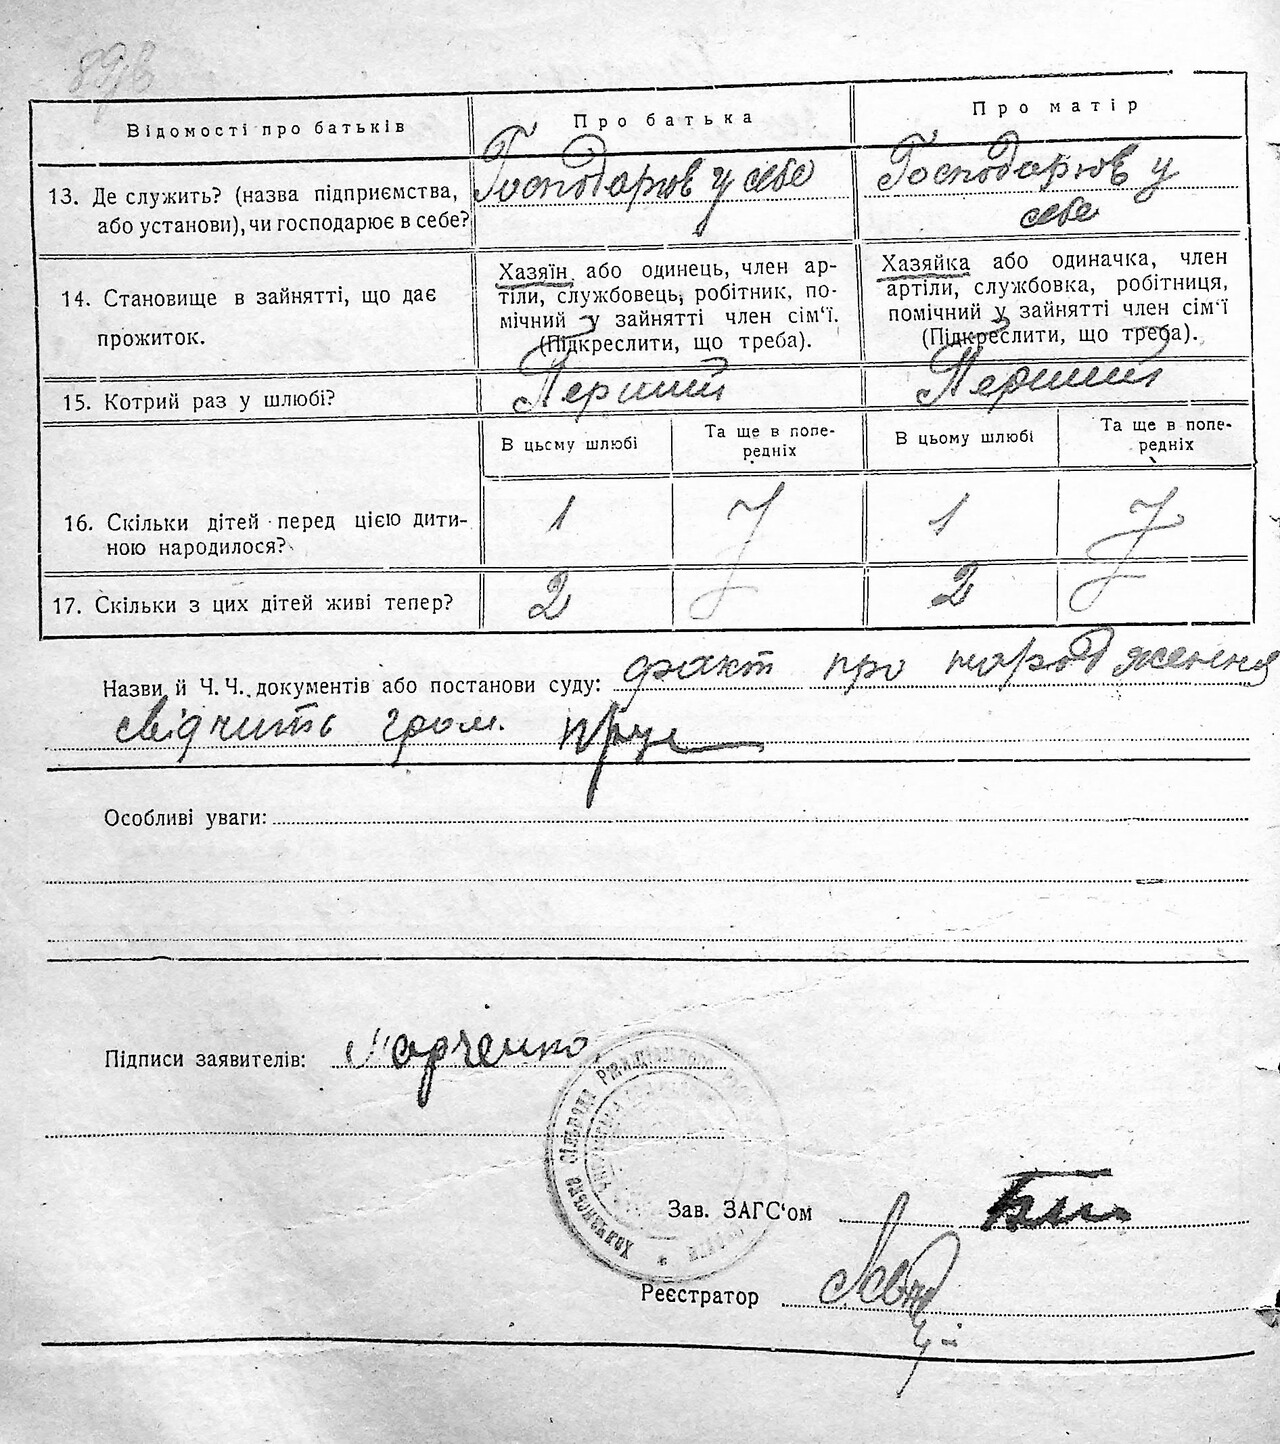 Відомості про батьків
Про батька
Про матір
13. Де служить? (назва підприємства,
або установи), чи господарює в себе?
Господарюв у себе
Господарюв у
себе
14. Становище в зайнятті, що дає
прожиток.
Хазяїн або одинець, член ар-
тіли, службовець, робітник, по-
мічний у зайнятті член сім'ї.
(Підкреслити, що треба).
Хазяйка або одиначка, член
артіли, службовка, робітниця,
помічний у зайнятті член сім'ї
(Підкреслити, що треба).
15. Котрий раз у шлюбі?
Перший
Перший
В цьому шлюбі
Та ще в попе-
редніх
В цьому шлюбі
Та ще в попе-
редніх
16. Скільки дітей перед цією дити-
ною народилося?
1
1
17. Скільки з цих дітей живі тепер?
2
2
Назви й Ч. Ч. документів або постанови суду: факт про народження
свідчить гром.
Особливі уваги:
Підписи заявителів: Марченко
Зав. ЗАГС'ом
Реєстратор